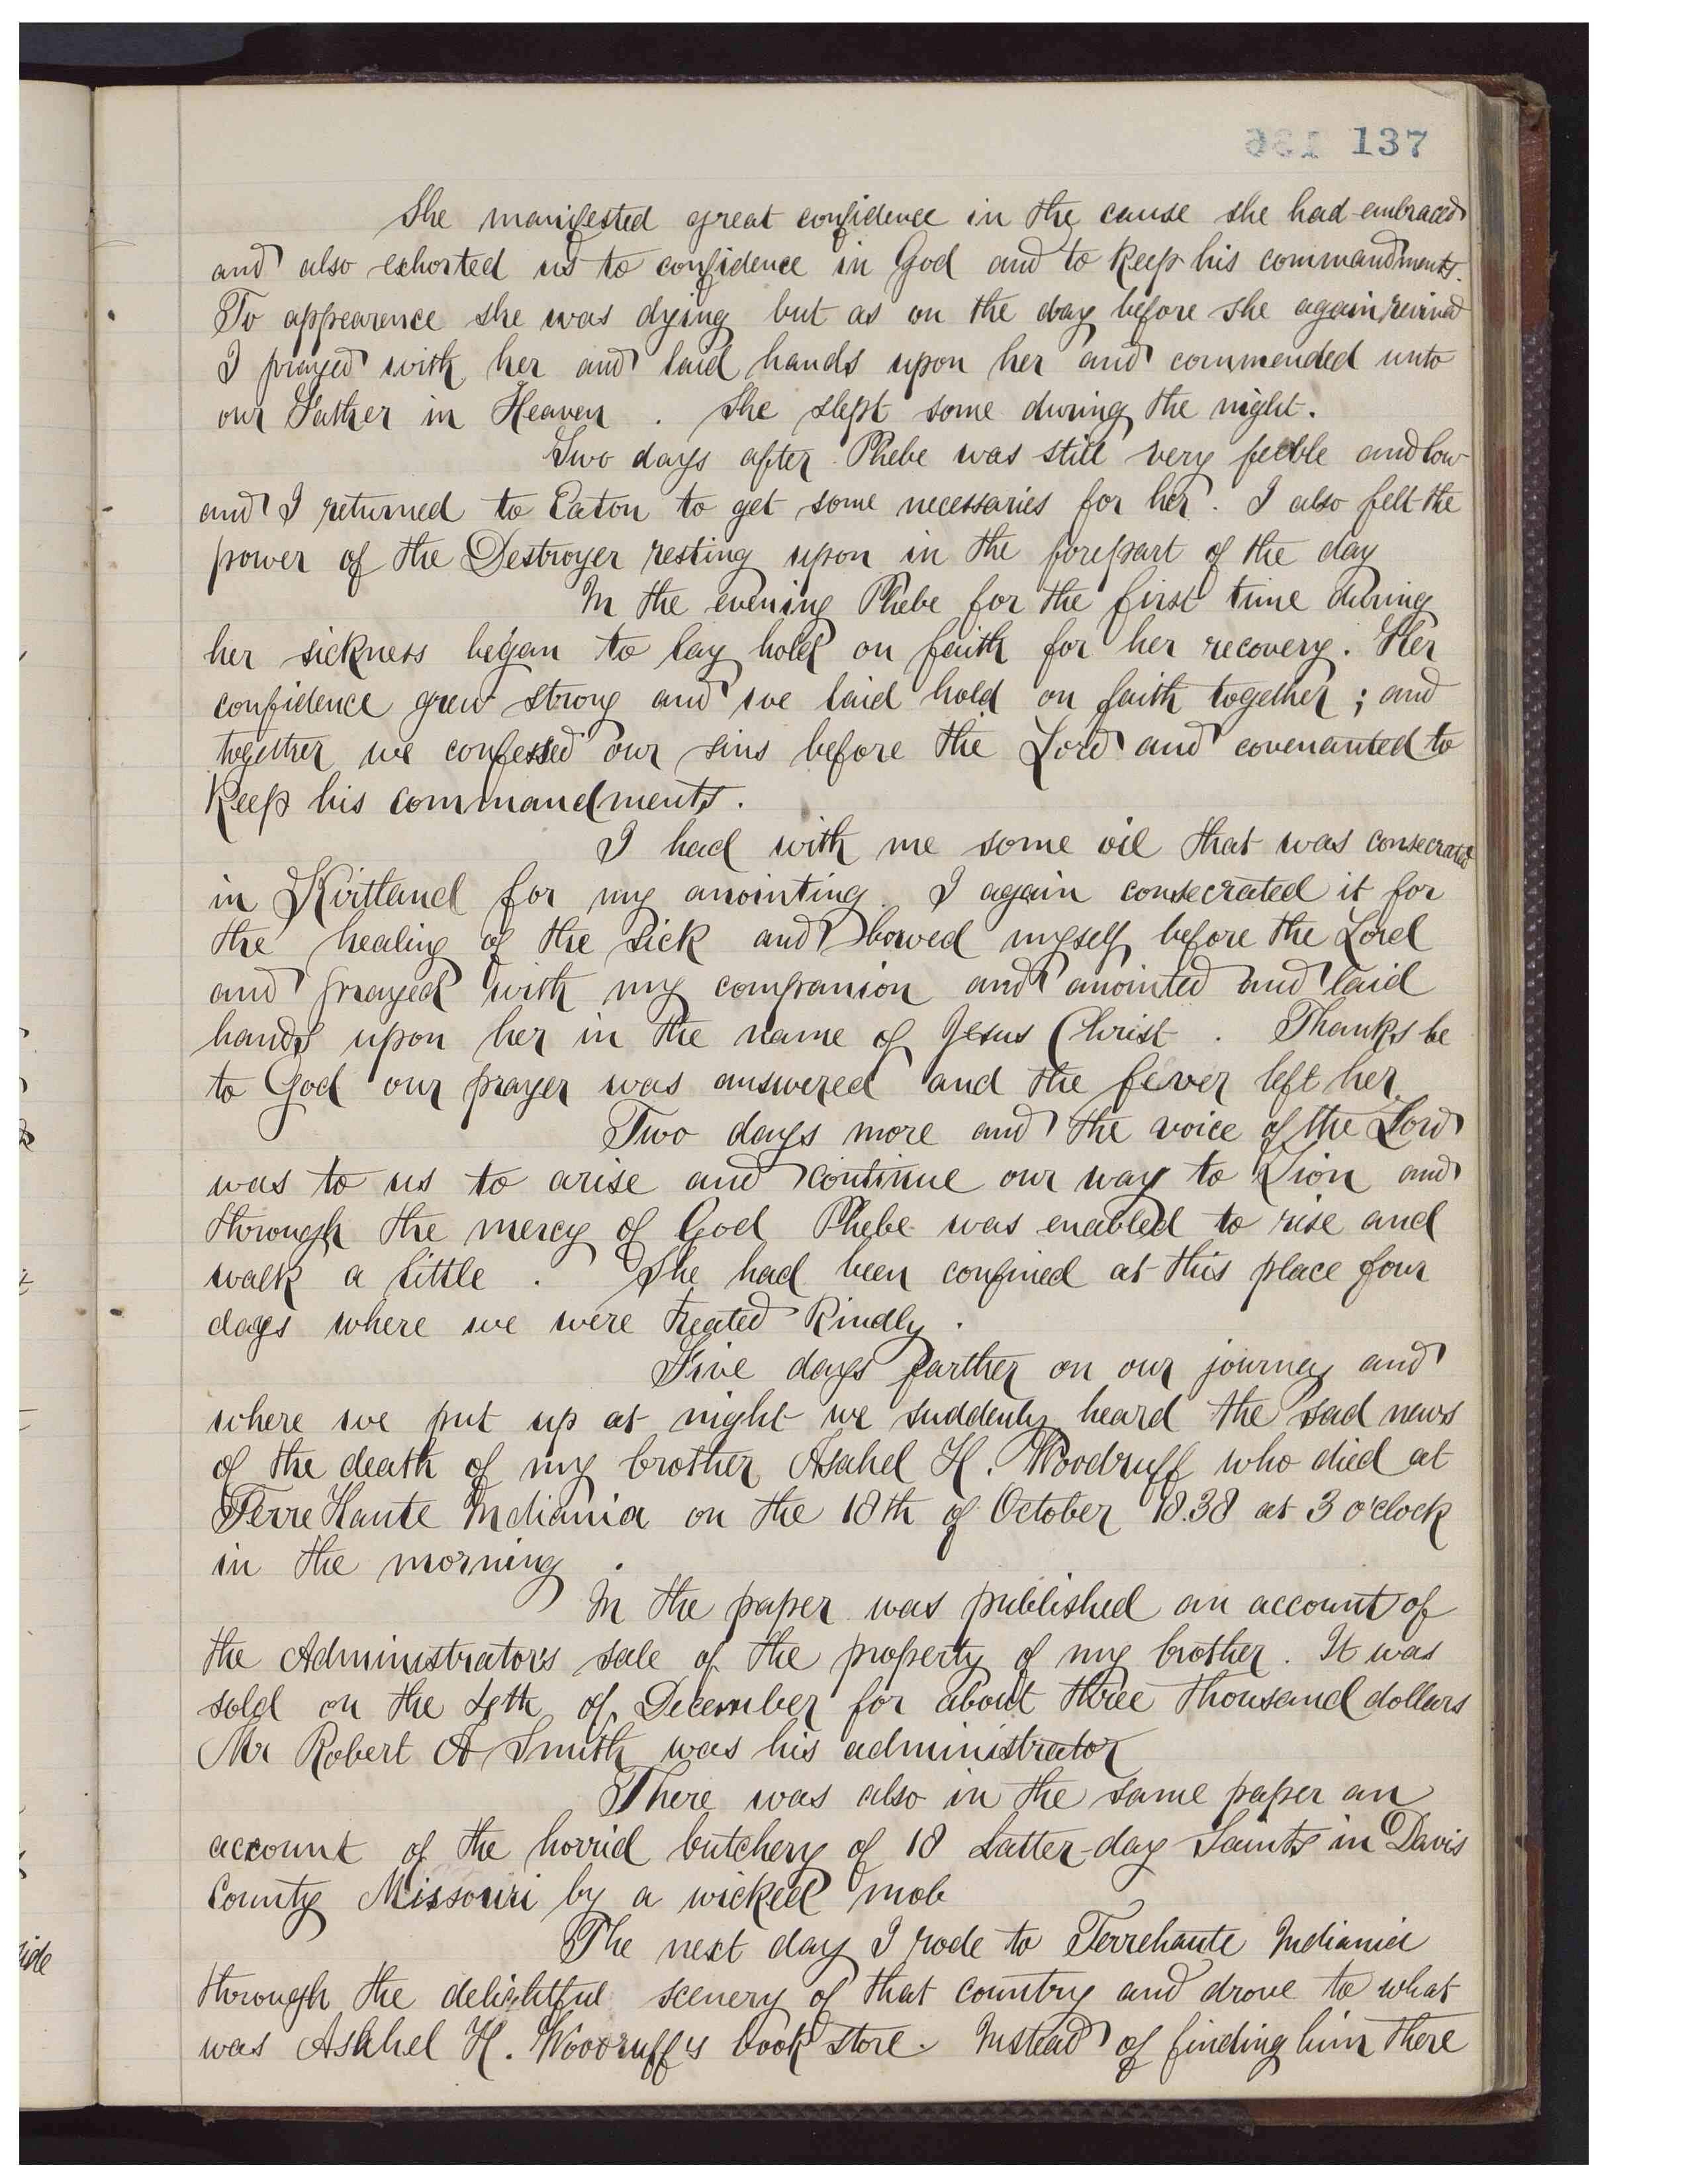 137
She manifested great confidence in the cause she had embraced
and also exhorted us to confidence in God and to keep his commandments.
To appearence she was dying but as on the day before she again revived
I prayed with her and laid hands upon her and commended unto
our Father in Heaven . She slept some during the night.
Two days after Phebe was still very feeble and low
and I returned to Eaton to get some necessaries for her. I also felt the
power of the Destroyer resting upon in the forepart of the day
In the evening Phebe for the first time during
her sickness began to lay hold on faith for her recovery. Her
confidence grew strong and we laid hold on faith together ; and
together we confessed our sins before the Lord and covenanted to
keep his commandments.
I had with me some oil that was consecrated
in Kirtland for my anointing. I again consecrated it for
the healing of the sick and bowed myself before the Lord
and prayed with my companion and anointed and laid
hands upon her in the name of Jesus Christ . Thanks be
to God our prayer was answered and the fever left her.
Two days more and the voice of the Lord
was to us to arise and continue our way to Zion and
through the mercy of God Phebe was enabled to rise and
walk a little . She had been confined at this place four
days where we were treated kindly .
Five days farther on our journey and
where we put up at night we suddenly heard the sad news
of the death of my brother Asahel H. Woodruff who died at
Terre Haute Indiania on the 18th of October 18.38 at 3 o'clock
in the morning .
In the paper was published an account of
the Administrator's sale of the property of my brother. It was
sold on the 4th of December for about three thousand dollars
Mr Robert A Smith was his administrator
There was also in the same paper an
account of the horrid butchery of 18 Latter-day Saints in Davis
County Missouri by a wicked mob
The next day I rode to Terrehaute Indiania
through the delightful scenery of that country and drove to what
was Ashhel H. Woodruff's book store. Instead of finding him there